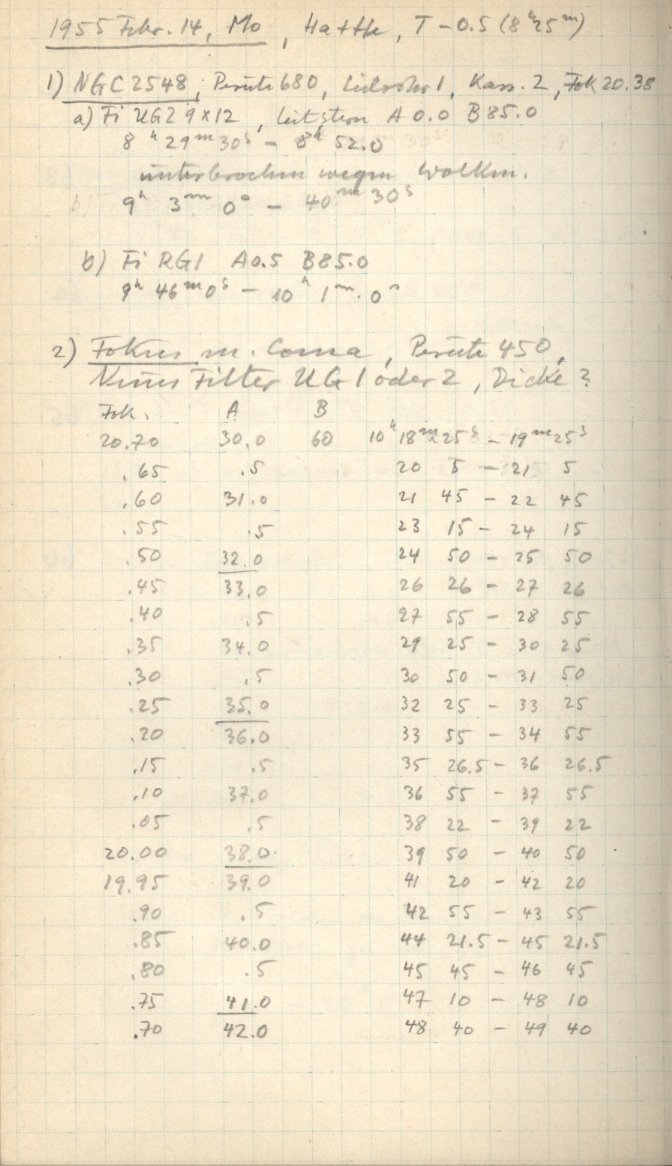 1955 Febr. 14, Mo, Hatthe, T -0.5 (8h25m)
1) NGC 2548, Perute 680, Leitrohr 1, Kass. 2, Fok 20.38
a) Fi UG2 9x12, Leitstern A 0.0 B 85.0
8h 29m 30s - 8h 52.0
unterbrochen wegen Wolken.
9h 3m 0s - 40m 30s
b) Fi RG1 A 0.5 B 85.0
9h 46m 0s - 10h 1m. 0s
2) Fokus m. Coma, Perute 450,
Neues Filter UG 1 oder 2, Dicke?
Fok. A B
20.70 30.0 60 10h 18m 25s - 19m 25s
.65 .5 20 5 - 21 5
.60 31.0 21 45 - 22 45
.55 .5 23 15 - 24 15
.50 32.0 24 50 - 25 50
.45 33.0 26 26 - 27 26
.40 .5 27 55 - 28 55
.35 34.0 29 25 - 30 25
.30 .5 30 50 - 31 50
.25 35.0 32 25 - 33 25
.20 36.0 33 55 - 34 55
.15 .5 35 26.5 - 36 26.5
.10 37.0 36 55 - 37 55
.05 .5 38 22 - 39 22
20.00 38.0 39 50 - 40 50
19.95 39.0 41 20 - 42 20
.90 .5 42 55 - 43 55
.85 40.0 44 21.5 - 45 21.5
.80 .5 45 45 - 46 45
.75 41.0 47 10 - 48 10
.70 42.0 48 40 - 49 40